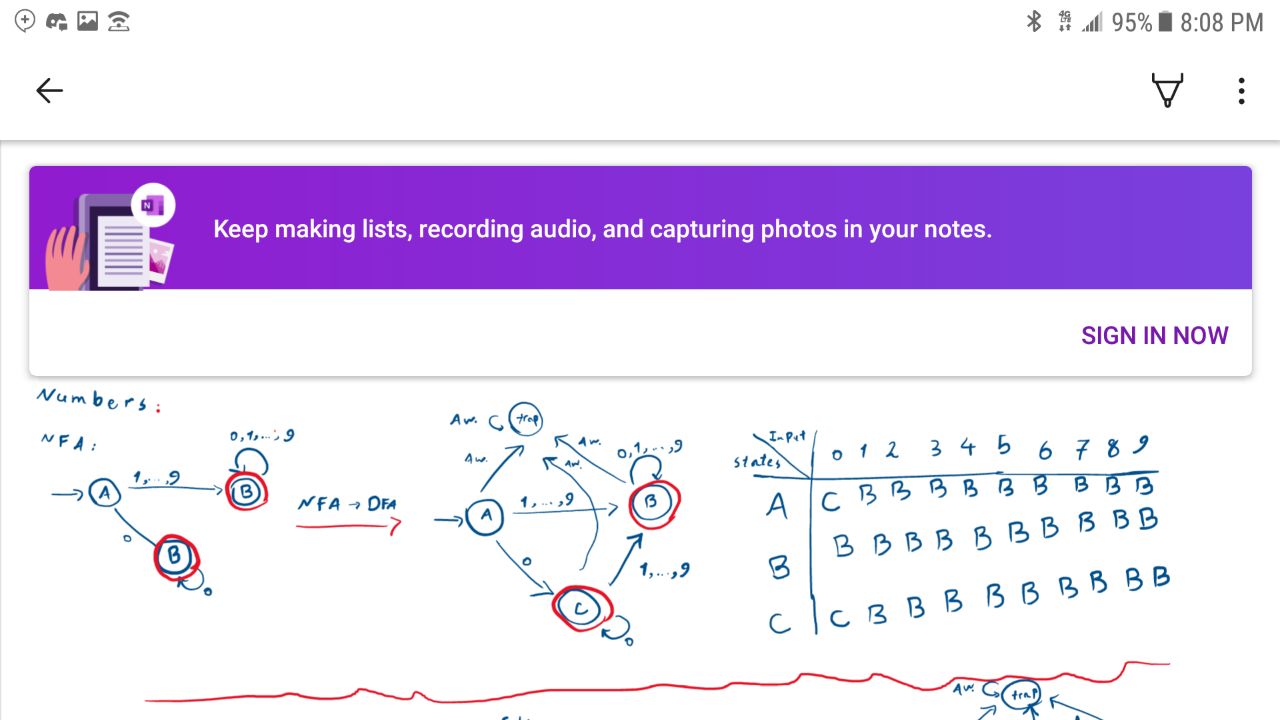 95% 8:08 PM
N
Keep making lists, recording audio, and capturing photos in your notes.
SIGN IN NOW
Numbers:
NFA:
0,1,...,9
A
1,...,9
B
0
B
0
NFA → DFA
Aw.
trap
Aw.
Aw.
Aw.
0,1,...,9
A
1,...,9
B
0
1,...,9
C
0
Input
states
0 1 2 3 4 5 6 7 8 9
A C B B B B B B B B B
B B B B B B B B B B B
C C B B B B B B B B B
Aw.
trap